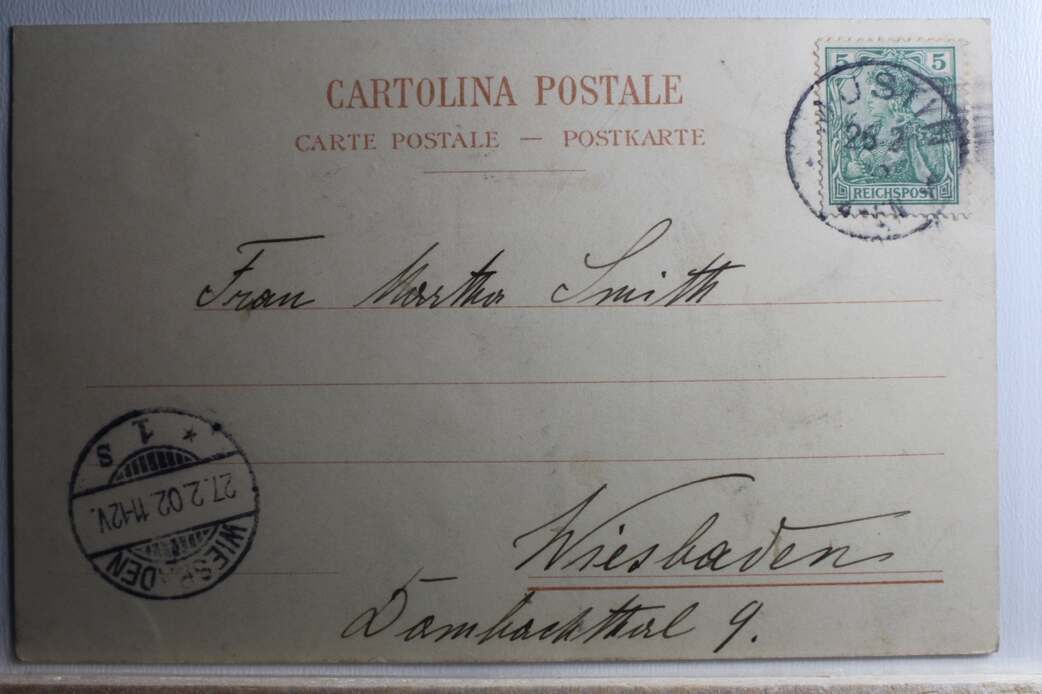 CARTOLINA POSTALE
CARTE POSTALE — POSTKARTE
5 5
REICHSPOST
Frau Martha Smith
Wiesbaden
Dambachthal 9.
WIESBADEN
27.2.02.11-12V.
* 1 s